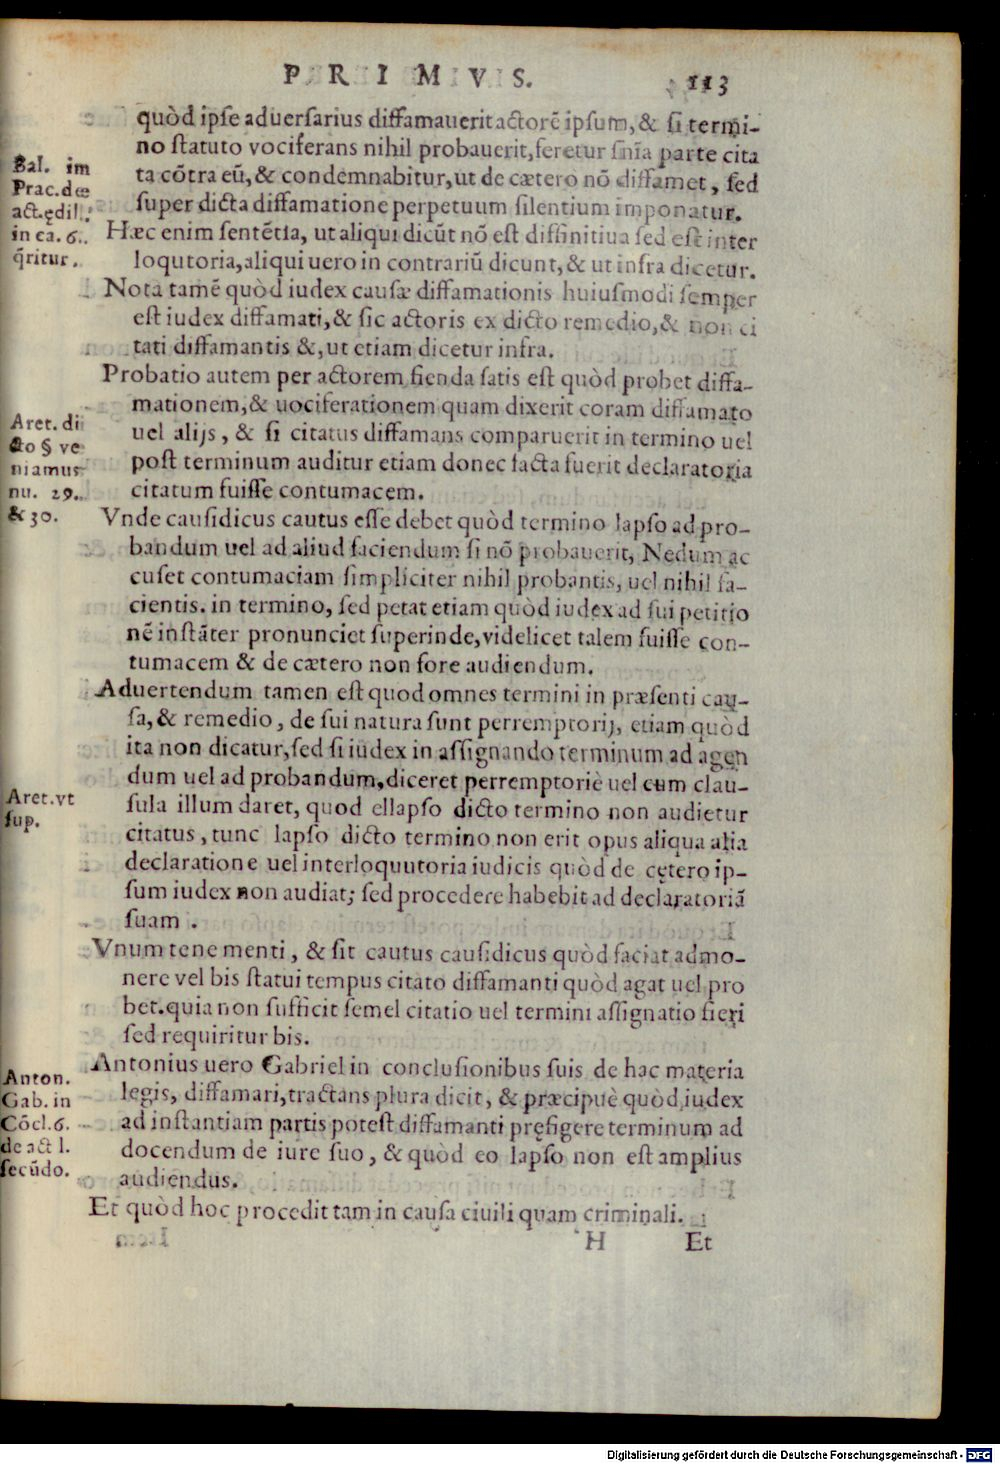 PRIMVS. 113
quòd ipse aduersarius diffamauerit actorẽ ipsum, & si termi-
no statuto vociferans nihil probauerit, feretur sñia parte cita
ta cõtra eũ, & condemnabitur, ut de cætero nõ diffamet, sed
super dicta diffamatione perpetuum silentium imponatur.
Bal. im
Prac. de
act. ędil.
in ca. 6.
q̃ritur.
Hæc enim sentẽtia, ut aliqui dicũt nõ est diffinitiua sed est inter
loqutoria, aliqui uero in contrariũ dicunt, & ut infra dicetur.
Nota tamẽ quòd iudex causæ diffamationis huiusmodi semper
est iudex diffamati, & sic actoris ex dicto remedio, & non ci
tati diffamantis &, ut etiam dicetur infra.
Probatio autem per actorem fienda satis est quòd probet diffa-
mationem, & uociferationem quam dixerit coram diffamato
uel alijs, & si citatus diffamans comparuerit in termino uel
post terminum auditur etiam donec facta fuerit declaratoria
citatum fuisse contumacem.
Aret. di
cto § ve
niamus
nu. 29.
& 30.
Vnde causidicus cautus esse debet quòd termino lapso ad pro-
bandum uel ad aliud faciendum si nõ probauerit, Nedum ac
cuset contumaciam simpliciter nihil probantis, uel nihil fa-
cientis. in termino, sed petat etiam quòd iudex ad sui petitio
nẽ instãter pronunciet superinde, videlicet talem fuisse con-
tumacem & de cætero non fore audiendum.
Aduertendum tamen est quod omnes termini in præsenti cau-
sa, & remedio, de sui natura sunt perremptorij, etiam quòd
ita non dicatur, sed si iudex in assignando terminum ad agen
dum uel ad probandum, diceret perremptoriè uel cum clau-
sula illum daret, quod ellapso dicto termino non audietur
citatus, tunc lapso dicto termino non erit opus aliqua alia
declaratione uel interloquutoria iudicis quòd de cętero ip-
sum iudex non audiat; sed procedere habebit ad declaratoriã
suam.
Aret. vt
sup.
Vnum tene menti, & sit cautus causidicus quòd faciat admo-
nere vel bis statui tempus citato diffamanti quòd agat uel pro
bet. quia non sufficit semel citatio uel termini assignatio fieri
sed requiritur bis.
Antonius uero Gabriel in conclusionibus suis de hac materia
legis, diffamari, tractans plura dicit, & præcipuè quòd iudex
ad instantiam partis potest diffamanti pręfigere terminum ad
docendum de iure suo, & quòd eo lapso non est amplius
audiendus.
Anton.
Gab. in
Cõcl. 6.
de act l.
secũdo.
Et quòd hoc procedit tam in causa ciuili quam criminali.
H Et
Digitalisierung gefördert durch die Deutsche Forschungsgemeinschaft - DFG